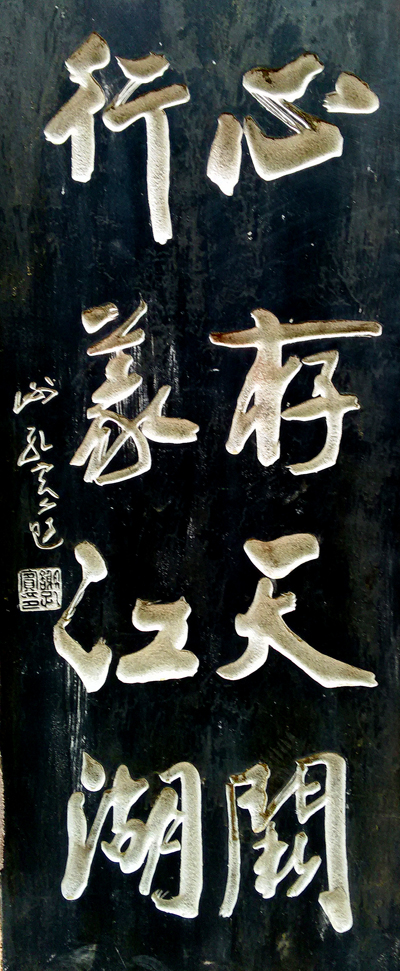 心存天闕
行義江湖